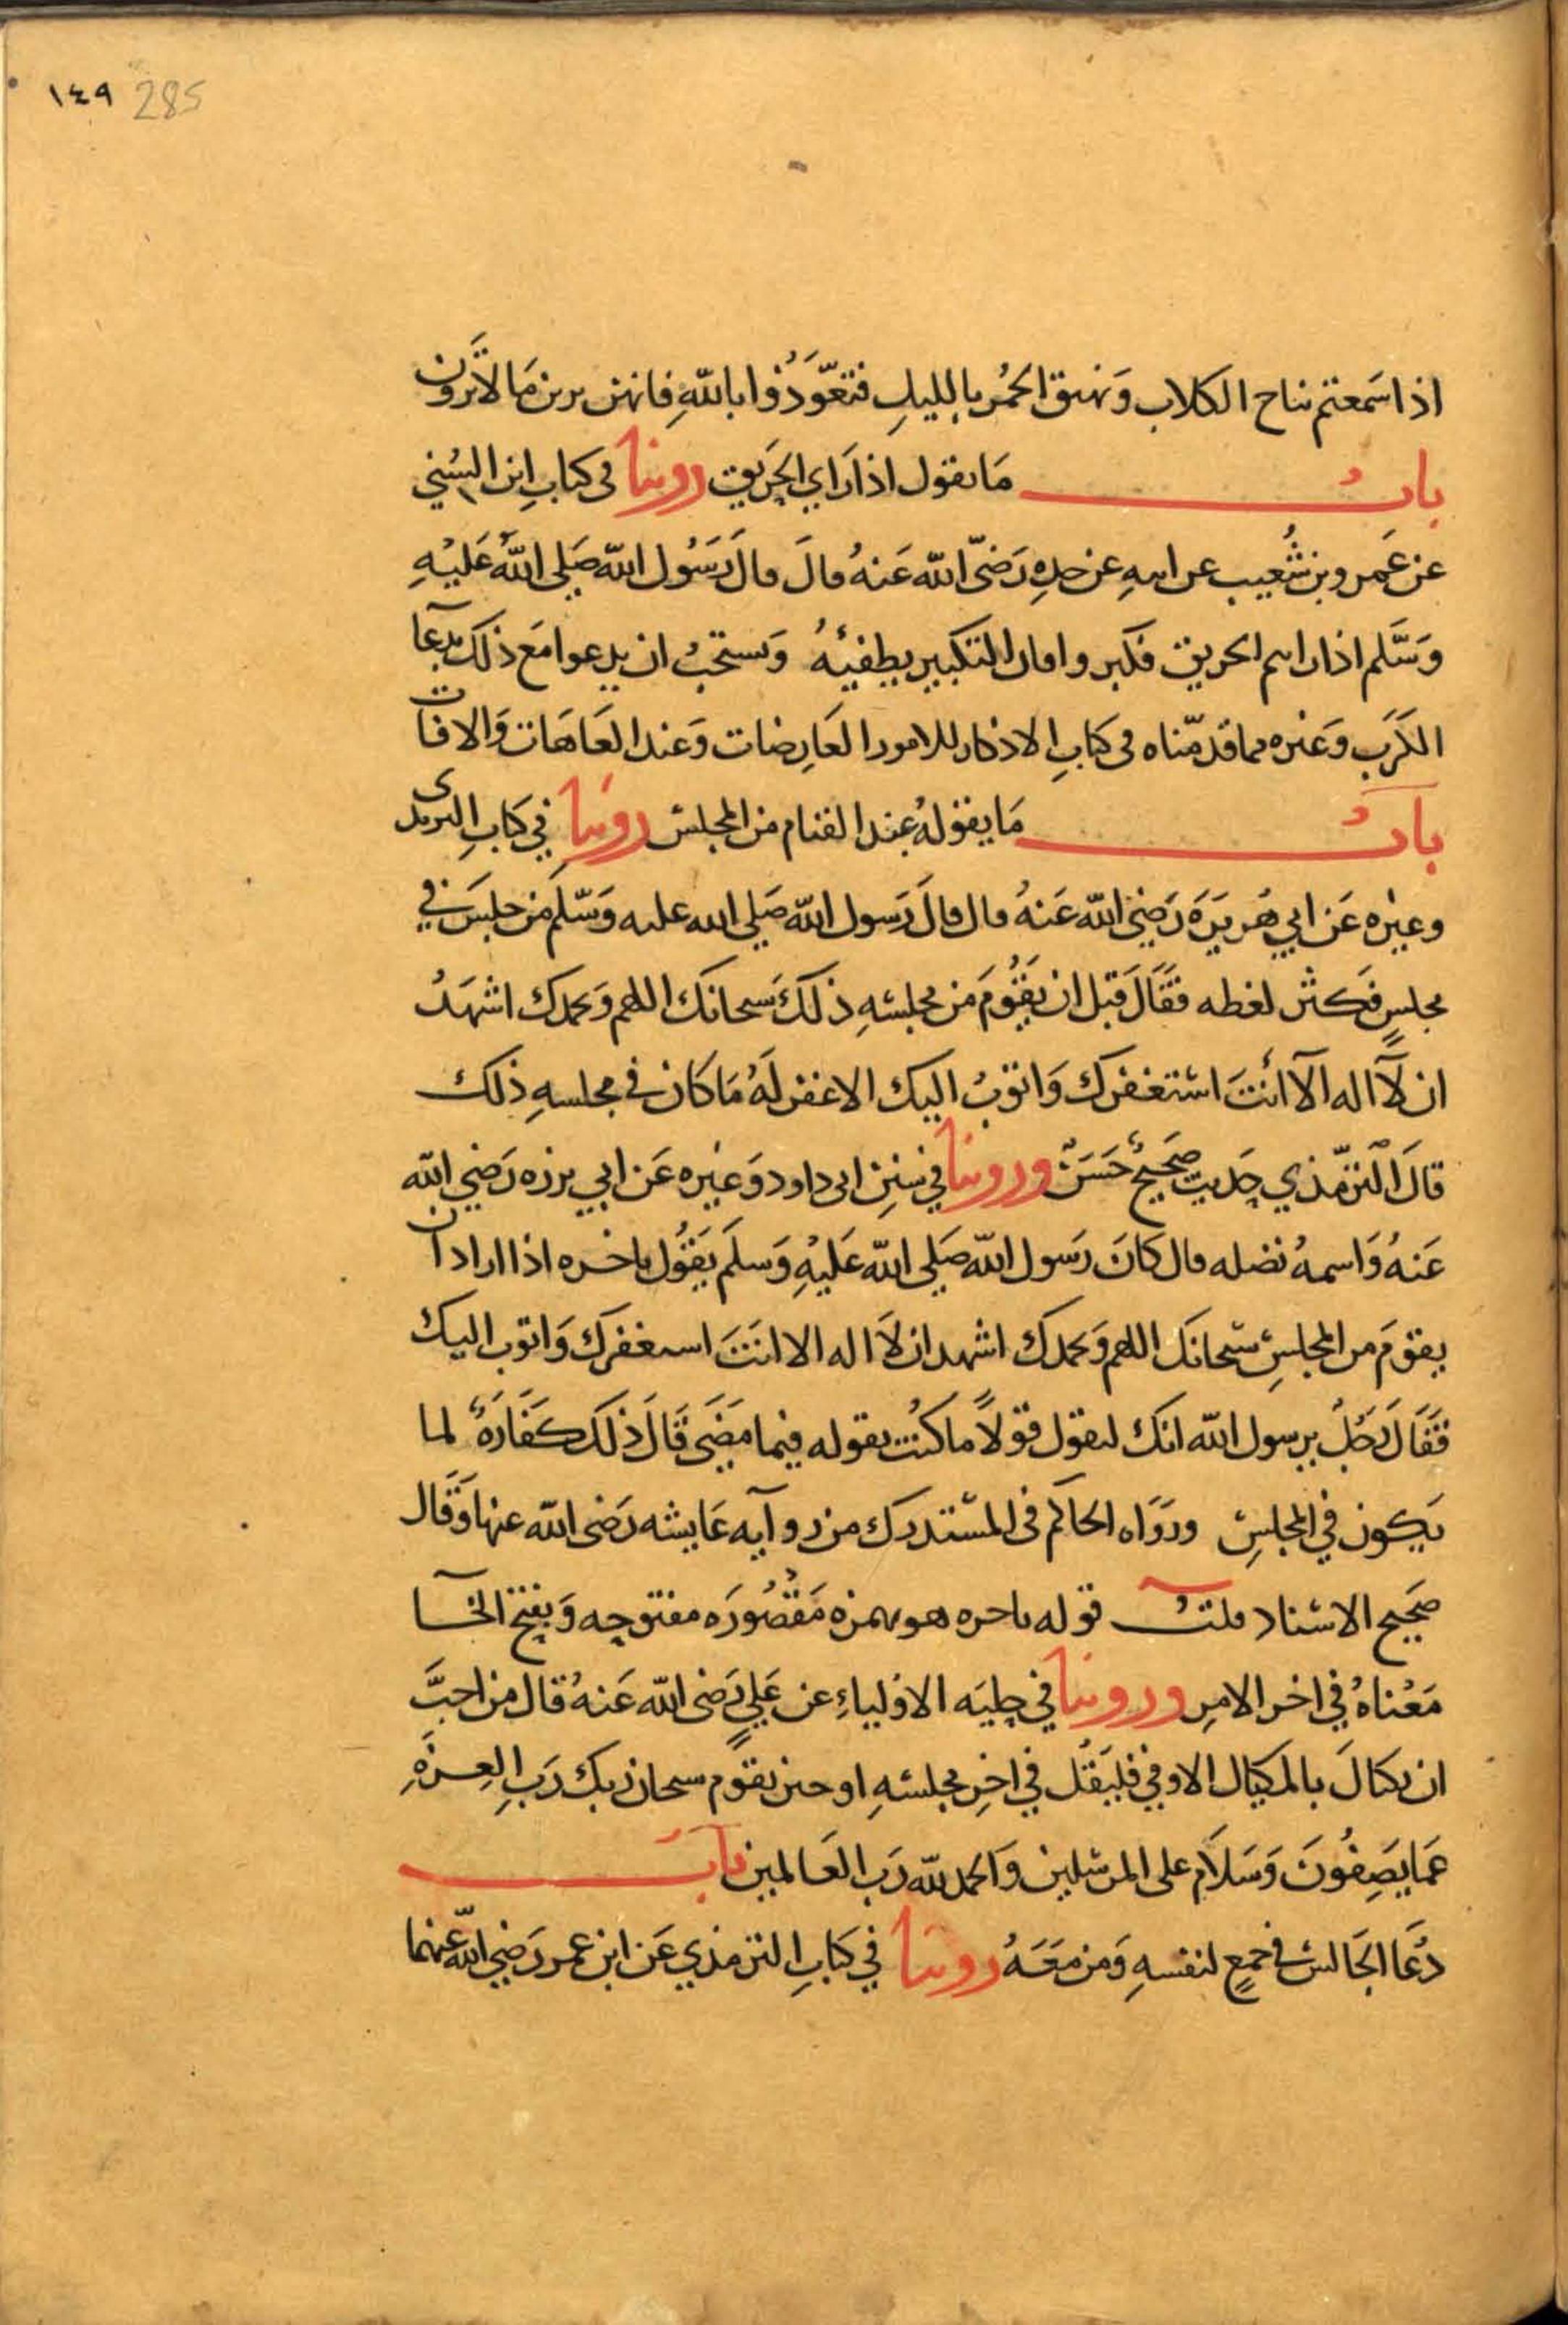 ١٤٩ 285
اذا سَمعتم نباح الكلاب وَنهيق الحمُر بالليلِ فتعَوَّذُوا باللهِ فانهن يرين مَا لاَ تَرَون
بابُ مَا يقول اذا رَاي الحَريق روينا في كتابِ ابن السُني
عن عَمرو بن شُعيب عن ابيهِ عن جدهِ رَضيّ الله عَنهُ قالَ قالَ رَسُول الله صَلى اللهُ عَليْهِ
وَسَّلم اذا رايتم الحريق فكبروا فان التكبير يطفيهُ وَيستحبُ ان يدعوا مَع ذلك بدعآ
الكَرَب وَغيره مما قدمّناه في كتابِ الاذكار للامور العَارِضات وَعند العَاهَات وَالافات
بابُ مَا يقولهُ عند القيام من المجلس روينا في كتابِ الترمذي
وغيره عَن ابي هُريرَة رَضيَ الله عَنهُ قال قالَ رَسول الله صَلى الله عليه وَسَّلم من جلسَ في
مجلسٍ فكثر لغطه فقَالَ قبل ان يَقُومَ من مجلسهِ ذلكَ سبحانك اللهم وَبحمدك اشهَدُ
ان لآ اله الآ انتَ استغفرك وَاتوبُ اليك الا غفر لَهُ مَا كَان في مجلسهِ ذلك
قالَ الترمّذي حَديث صَحيحٌ حَسَن وروينا في سننِ ابى داود وَغيره عَن ابي برزه رَضي الله
عَنهُ وَاسمهُ نضله قال كانَ رَسول الله صَلى الله عَليْهِ وَسلَم يَقُول باخره اذا اراد ان
يقومَ من المجلسِ سبحانك اللهم وَبحمدك اشهد ان لاَ اله الا انتَ استغفرك وَاتوب اليك
فَقَالَ رَجُلٌ يرسول الله انك لتقول قولاً ما كنت تقوله فيما مَضَى قَالَ ذلَك كَفَارَةٌ لما
يَكون في المجلسِ ورَوَاه الحاكم فى المستدرك من روآيه عَايشه رَضى الله عنها وَقَال
صَحيح الاسناد قلتُ قوله باخره هو بهمزه مَقْصُورَه مفتوحه وَبفتح الخآ
مَعْناهُ في اخر الامرِ وروينا في حِليَه الاوْلياءِ عن عَليٍ رَضى الله عَنهُ قال من احبَّ
ان يكتالَ بالمكيال الاوفي فليَقُل في اخرِ مجلسهِ او حين يقوم سبحان ربك رَبِ العِزةِ
عَمَا يَصِفُونَ وَسَلاَم على المرسلين وَالحمد لله رَب العَالمين بابُ
دُعَا الجَالس فى جمعٍ لنفسهِ وَمن مَعَهُ روينا في كتابِ الترمذي عَن ابن عمر رَضي الله عنهما